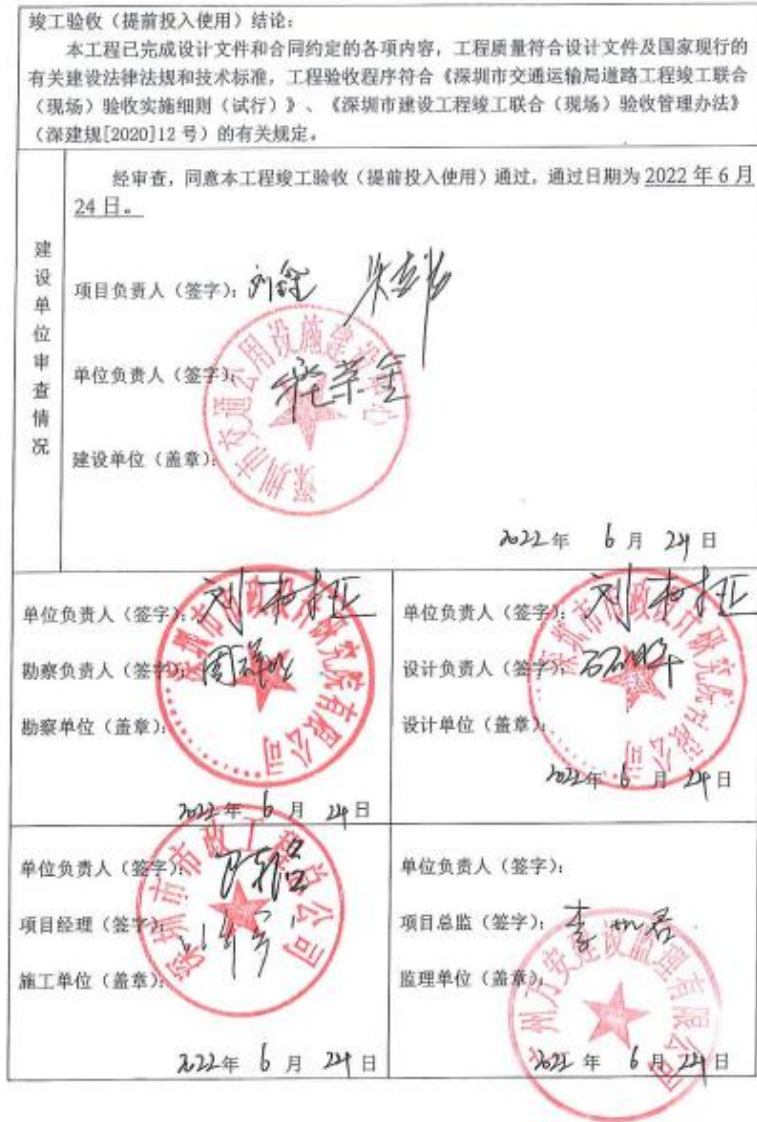 竣工验收（提前投入使用）结论：
本工程已完成设计文件和合同约定的各项内容，工程质量符合设计文件及国家现行的
有关建设法律法规和技术标准，工程验收程序符合《深圳市交通运输局道路工程竣工联合
（现场）验收实施细则（试行）》、《深圳市建设工程竣工联合（现场）验收管理办法》
（深建规[2020]12号）的有关规定。
建设单位审查情况
经审查，同意本工程竣工验收（提前投入使用）通过，通过日期为2022年6月
24日。
项目负责人（签字）：
单位负责人（签字）：
建设单位（盖章）：
深圳市交通公用设施建设中心
2022年 6月 24日
单位负责人（签字）：
勘察负责人（签字）：
勘察单位（盖章）：
深圳市市政设计研究院有限公司
2022年 6月 24日
单位负责人（签字）：
设计负责人（签字）：
设计单位（盖章）：
深圳市市政设计研究院有限公司
2022年 6月 24日
单位负责人（签字）：
项目经理（签字）：
施工单位（盖章）：
深圳市市政工程总公司
2022年 6月 24日
单位负责人（签字）：
项目总监（签字）：
监理单位（盖章）：
广州万安建设监理有限公司
2022年 6月 24日